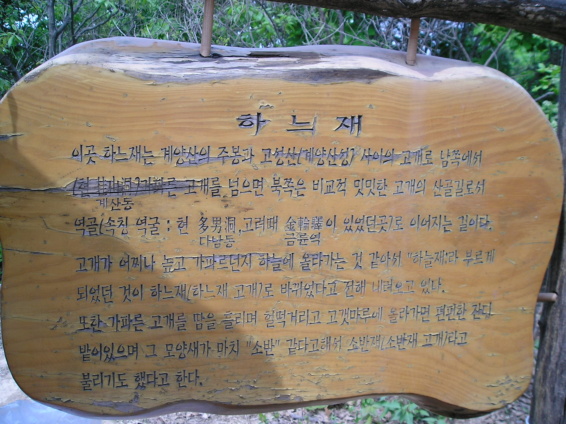 하느재
이곳 하느재는 계양산의 주봉과 고성산(계양산성) 사이의 고개로 남쪽에서
(현 桂山洞)가파른 고개를 넘으면 북쪽은 비교적 밋밋한 고개의 산골길로서
계산동
역골(속칭 역굴 : 현 多男洞, 고려때 金輪驛이 있었던곳)로 이어지는 길이다.
다남동 금륜역
고개가 어찌나 높고 가파르던지 하늘에 올라가는 것 같아서 "하늘재"라 부르게
되었던 것이 하느재(하느재 고개)로 바뀌었다고 전해 내려오고 있다.
또한 가파른 고개를 땀을 흘리며 헐떡거리고 고갯마루에 올라가면 편편한 잔디
밭이있으며 그 모양새가 마치 "소반" 같다고해서 소반재(소반재 고개)라고
불리기도 했다고 한다.